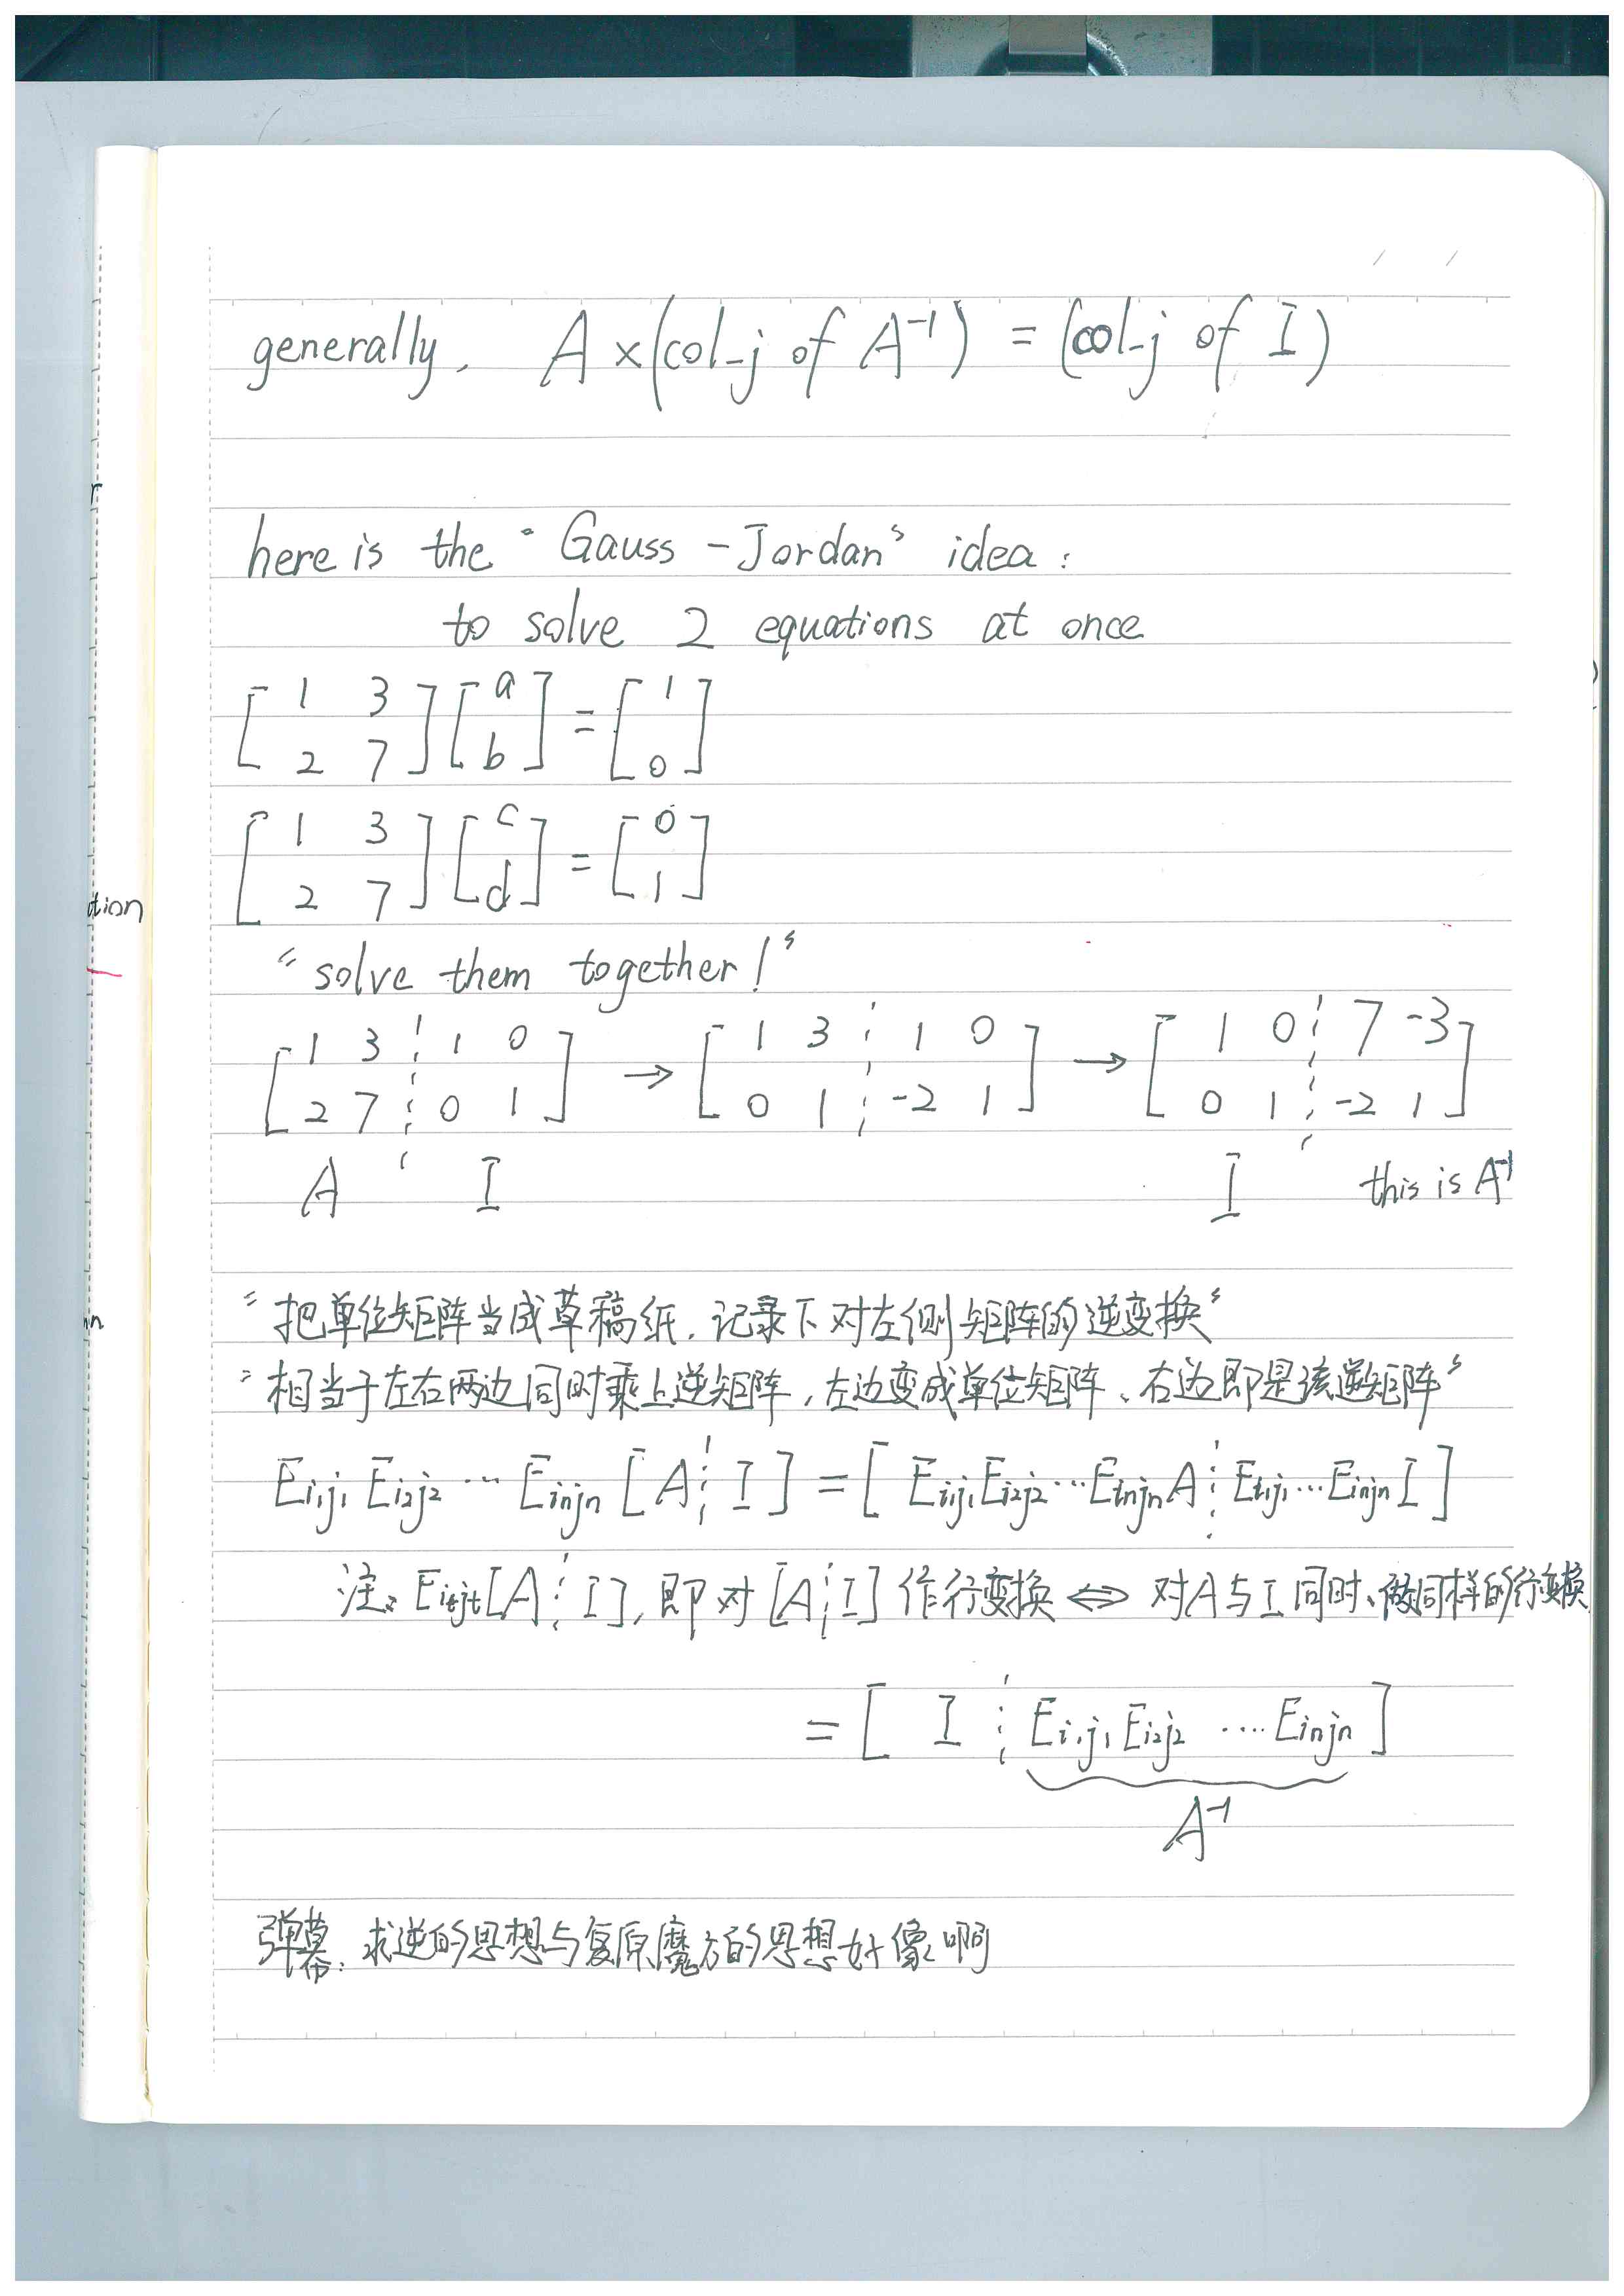 generally, A × (col-j of A⁻¹) = (col-j of I)
here is the "Gauss-Jordan" idea:
to solve 2 equations at once
[1 3; 2 7] [a; b] = [1; 0]
[1 3; 2 7] [c; d] = [0; 1]
"solve them together!"
[1 3 ¦ 1 0; 2 7 ¦ 0 1] → [1 3 ¦ 1 0; 0 1 ¦ -2 1] → [1 0 ¦ 7 -3; 0 1 ¦ -2 1]
A I I this is A⁻¹
"把单位矩阵当成草稿纸，记录下对左侧矩阵的逆变换"
"相当于左右两边同时乘上逆矩阵，左边变成单位矩阵、右边即是该逆矩阵"
Ei₁j₁ Ei₂j₂ ... Einjn [A ¦ I] = [Ei₁j₁Ei₂j₂...EinjnA ¦ Ei₁j₁...EinjnI]
注: Eitjt[A ¦ I], 即对[A ¦ I]作行变换 ⇔ 对A与I同时、做同样的行变换
= [I ¦ Ei₁j₁Ei₂j₂ .... Einjn]
A⁻¹
弹幕: 求逆的思想与复原魔方的思想好像啊
tion